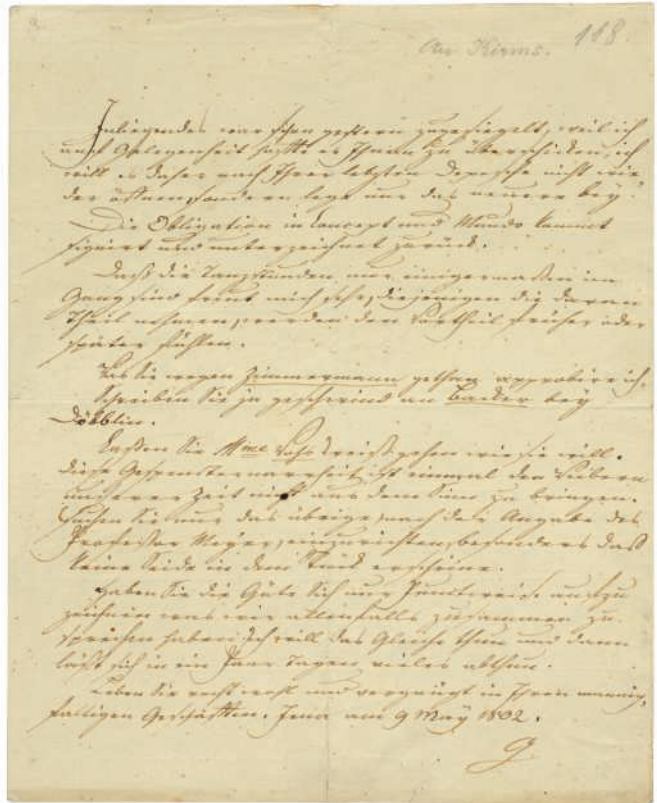 An Kirms. 118
Inliegendes war schon gestern zugesiegelt, weil ich
Gelegenheit hoffte es Ihnen zu überschicken, ich
will es daher nach Ihrer letzten Depesche nicht wie
der öffnen, sondern lege nur das neuere bey.
Die Obligation in Concept und Mundo kommt
signirt und unterzeichnet zurück.
Daß die Tanzstunden nur einigermaßen im
Gang sind freut mich sehr, diejenigen die daran
Theil nehmen, werden den Vortheil früher oder
später fühlen.
Was Sie wegen Zimmermann gethan approbire ich.
Schreiben Sie ja geschwind an Backer bey
Döbblin.
Laßen Sie Mme Vohs weiß gehen wie sie will.
diese Gespensternarrheit ist einmal den Weibern
unserer Zeit nicht aus dem Sinn zu bringen.
Suchen Sie nur das übrige, nach der Angabe des
Professor Meyer, einzurichten, besonders daß
keine Seide in dem Stück erscheine.
Haben Sie die Güte Sich nur punktweise aufzu
zeichnen was wir allenfalls zusammen zu
sprechen haben. Ich will das Gleiche thun und dann
läßt sich in ein Paar Tagen vieles abthun.
Leben Sie recht wohl und vergnügt in Ihren mannig
faltigen Geschäften. Jena am 9 May 1802.
G